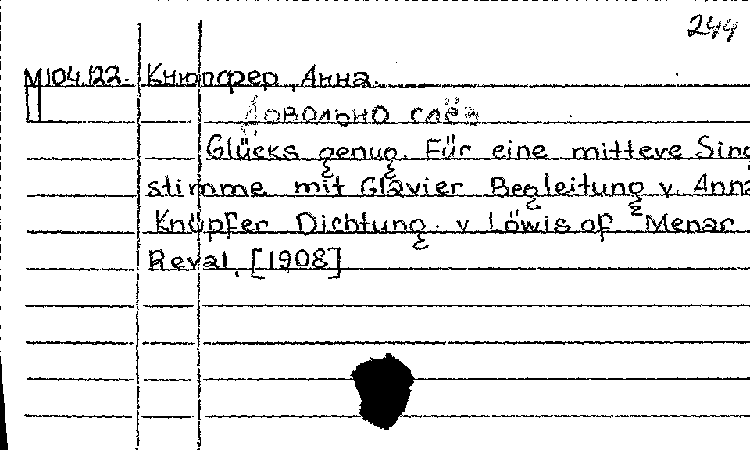 244
M104.122. Кнюпфер, Анна.
Довольно слёз
Glücks genug. Für eine mitteve Sing
stimme mit Clavier Begleitung v. Anna
Knüpfer Dichtung. v Löwis of Menar
Reval, [1908]